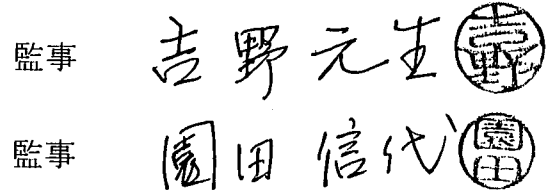 監事 吉野元生 吉野
監事 園田信代 園田